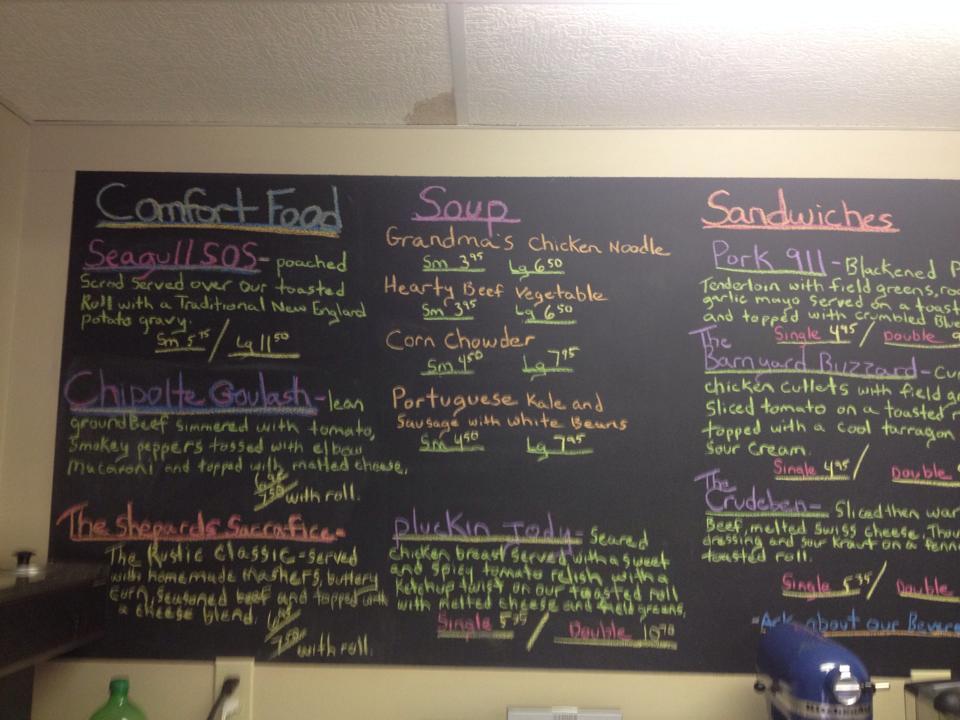 Comfort Food
Seagull SOS - poached
Scrod Served over our toasted
Roll with a Traditional New England
potato gravy.
Sm 5.75 / Lg 11.50
Chipolte Goulash - lean
ground Beef simmered with tomato,
Smokey peppers tossed with elbow
Macaroni and topped with melted cheese.
6.95 / 7.50 with roll.
The Shepards Sacrafice -
The Rustic Classic - served
with homemade mashers, buttery
corn, seasoned beef and topped with
a cheese blend.
6.95 / 7.50
with roll.
Soup
Grandma's Chicken Noodle
Sm 3.95 Lg 6.50
Hearty Beef Vegetable
Sm 3.95 Lg 6.50
Corn Chowder
Sm 4.50 Lg 7.95
Portuguese Kale and
Sausage with white Beans
Sm 4.50 Lg 7.95
pluckin Jody - Seared
chicken breast served with a sweet
and spicy tomato relish with a
Ketchup twist on our toasted roll
with melted cheese and field greens.
Single 5.35 / Double 10.70
Sandwiches
Pork 911 - Blackened
Tenderloin with field greens,
garlic mayo served on a
and topped with crumbled
Single 4.95 / Double
The
Barnyard Buzzard -
chicken cutlets with field
Sliced tomato on a toasted
topped with a cool tarragon
Sour Cream.
Single 4.95 / Double
The
Crudeben - Sliced then
Beef, melted Swiss cheese,
dressing and sour kraut on a
toasted roll.
Single 5.35 / Double
- Ask about our